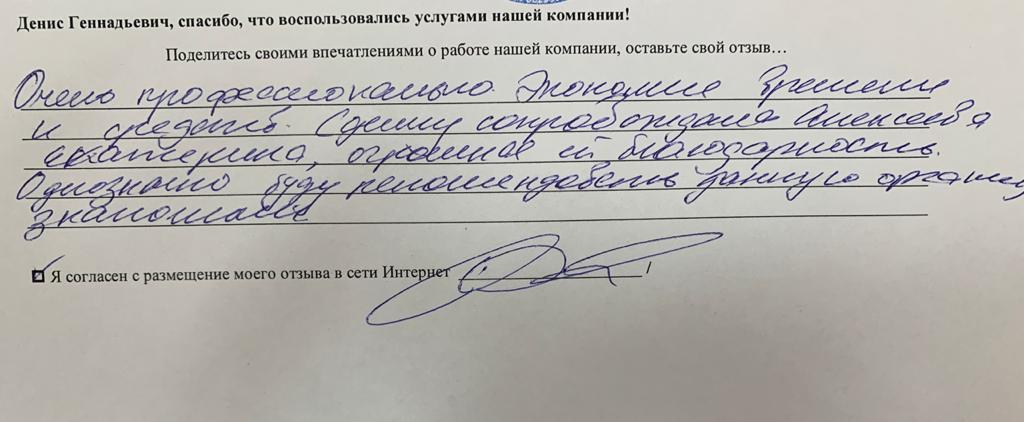 Денис Геннадьевич, спасибо, что воспользовались услугами нашей компании!
Поделитесь своими впечатлениями о работе нашей компании, оставьте свой отзыв…
Очень профессионально. Экономия времени
и средств. Сделку сопровождала Алексеева
Екатерина, огромная ей благодарность.
Однозначно буду рекомендовать данную
знакомым
Я согласен с размещение моего отзыва в сети Интернет /